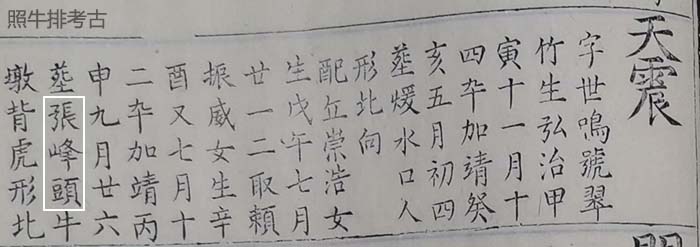 照牛排考古
天震
字世鳴號翠
竹生弘治甲
寅十一月十
四年加靖癸
亥五月初四
塟煖水口人
形北向
配丘崇浩女
生戊午七月
廿一二取賴
振威女生辛
酉又七月十
二年加靖丙
申九月廿六
塟張峰頭牛
墩背虎形北